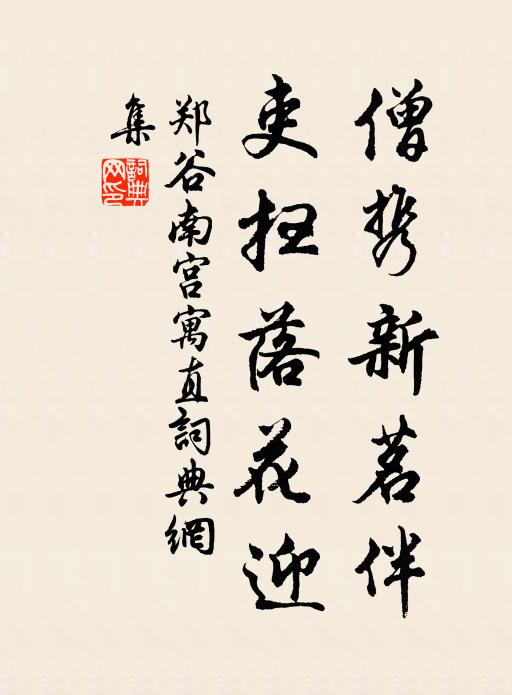 僧携新茗伴
吏扫落花迎
郑谷南宫寓直詞典網
集
詞典网印